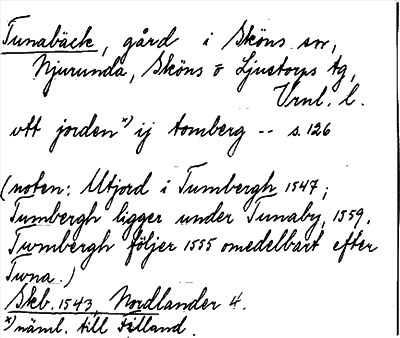 Tunabäck, gård i Sköns sn,
Njurunda, Sköns o Ljustorps tg,
Vrnl. l.
vtt jorden *) ij tomberg -- s. 126
(noten: Utjord i Tumbergh 1547;
Tumbergh ligger under Tunaby, 1559.
Twmbergh följer 1555 omedelbart efter
Twna.)
Skb. 1543, Nordlander 4.
*) näml. till Filland.